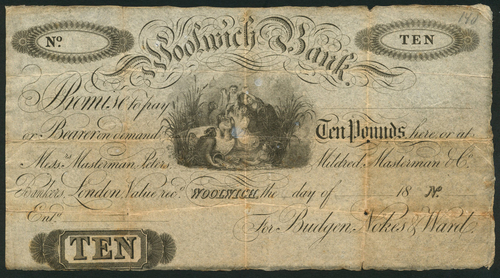 No.
Woolwich Bank.
TEN
190
I Promise to pay
or Bearer on demand Ten Pounds, here, or at
Messrs. Masterman, Peters, Mildred, Masterman & Co.
Bankers, London, Value recd. WOOLWICH, the day of 18 No.
Entd.
For Budgen, Nokes & Ward.
TEN